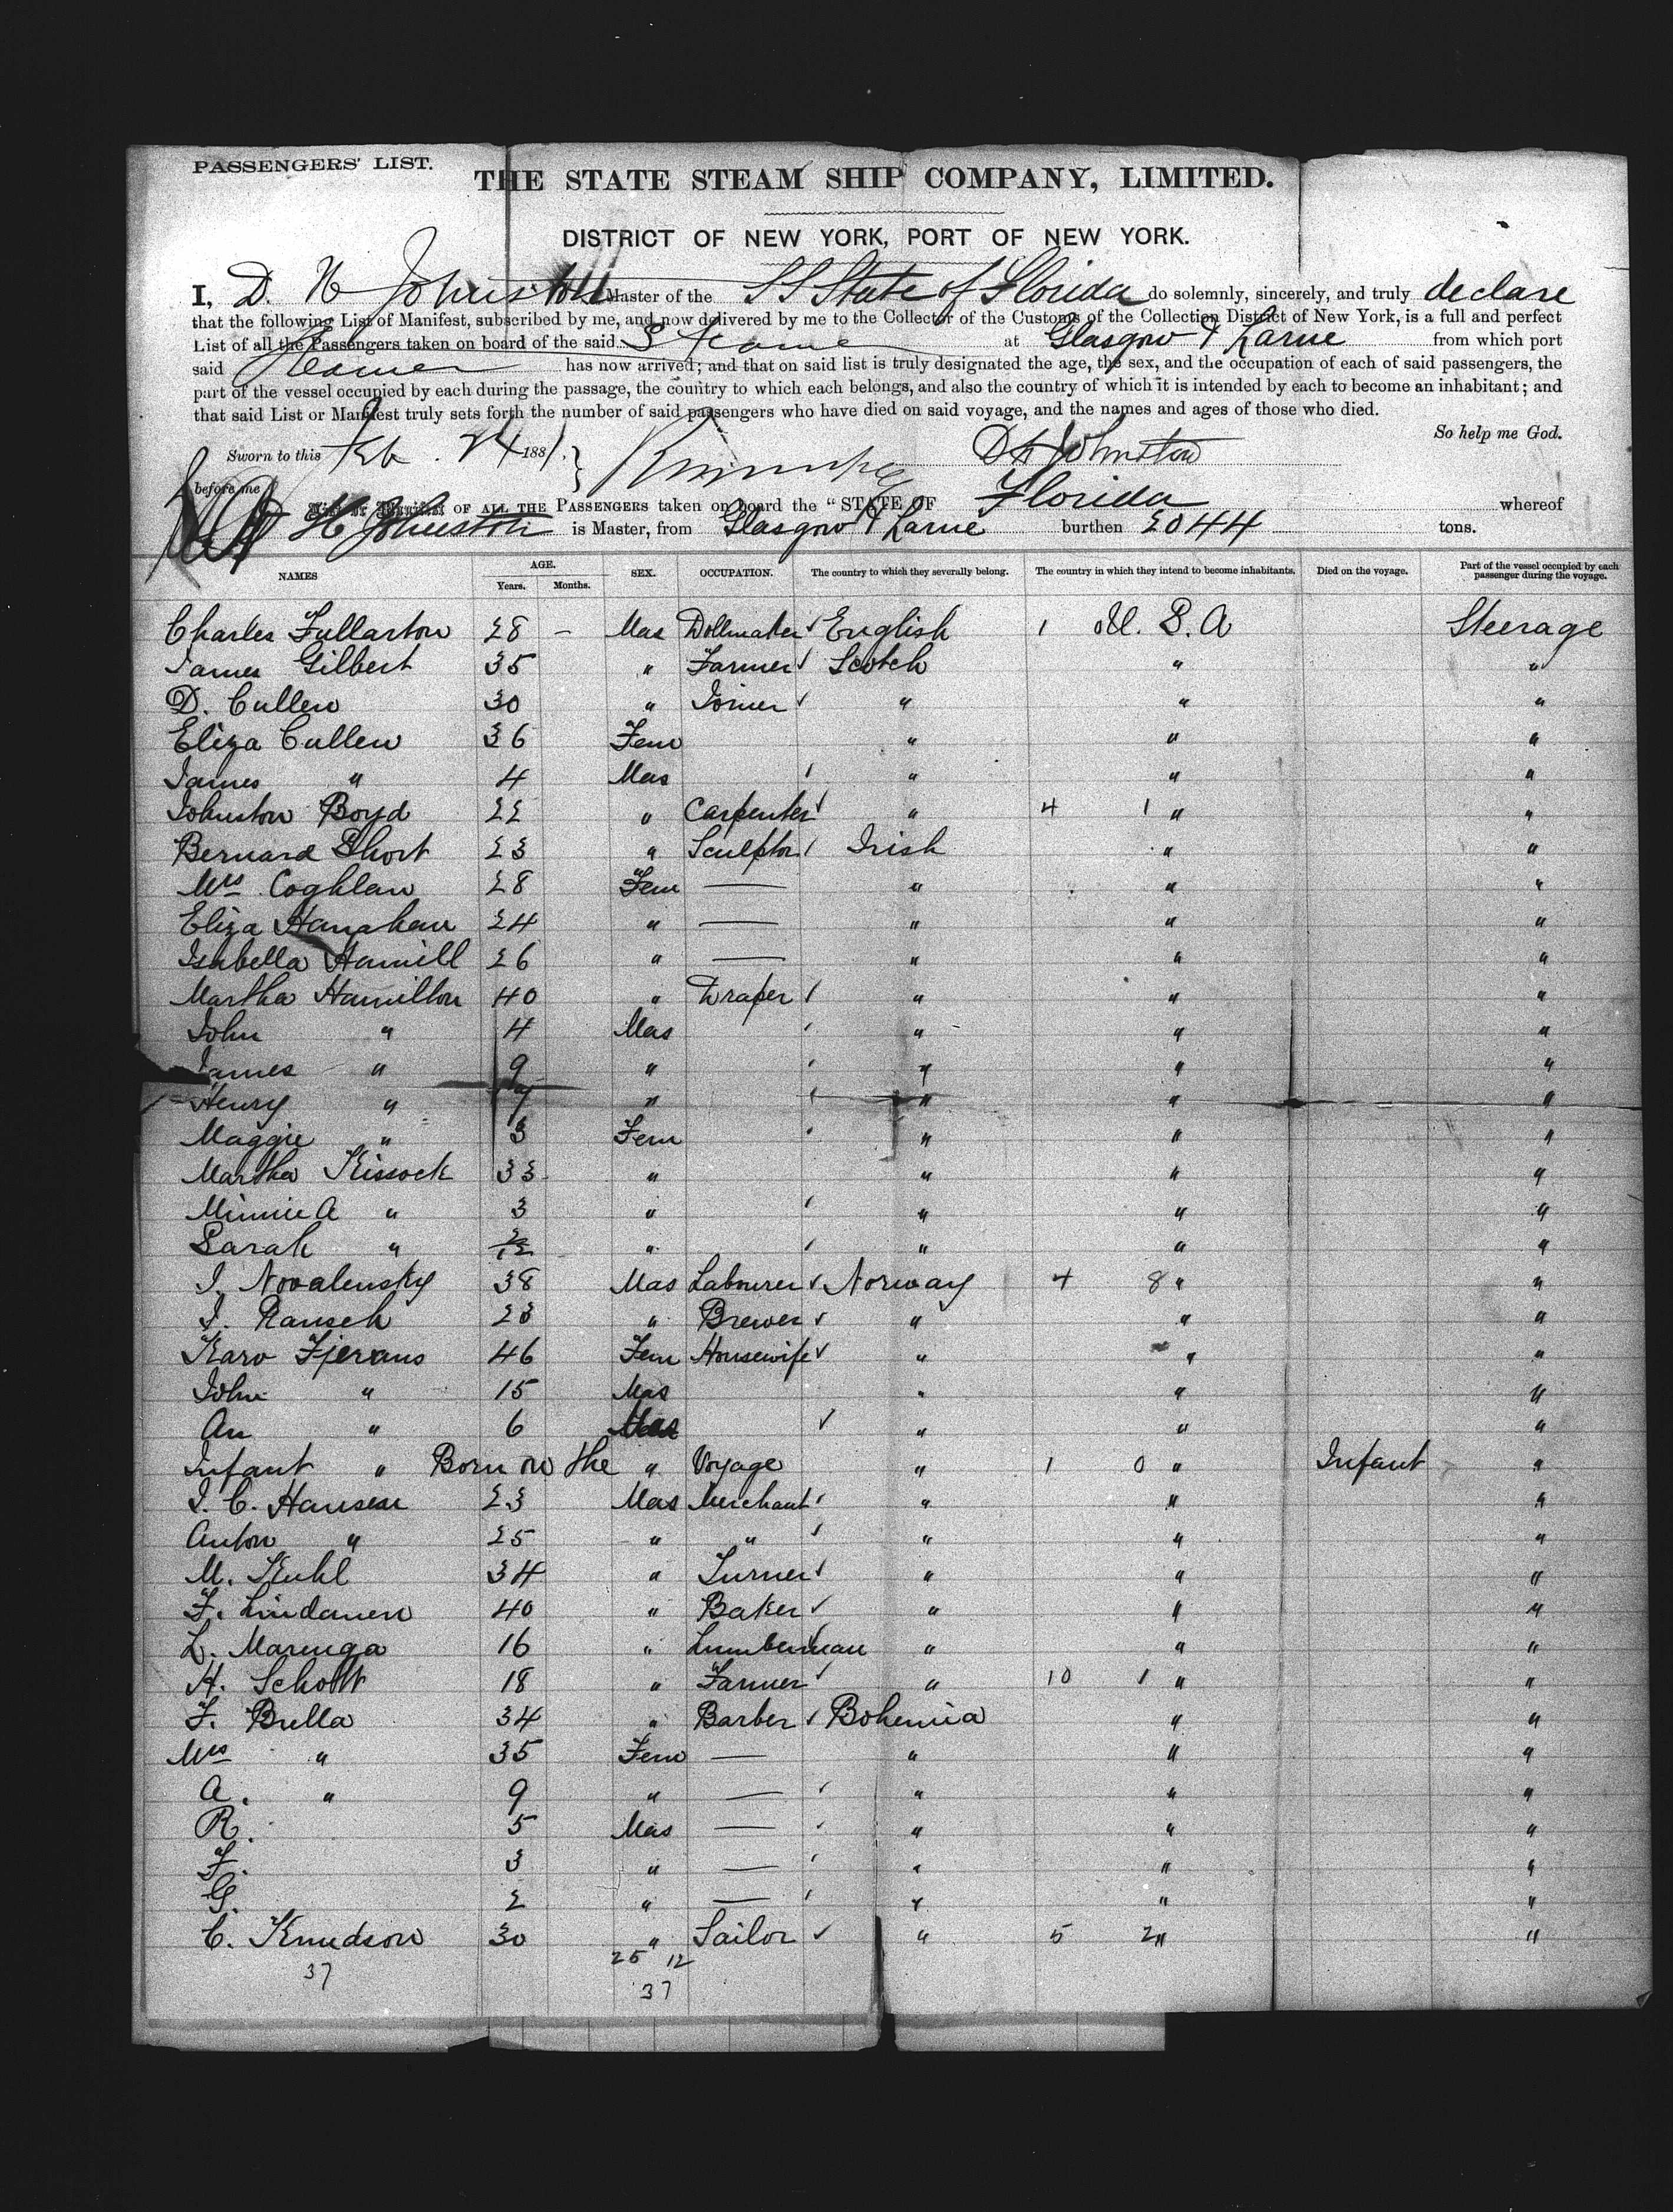 PASSENGERS' LIST.
THE STATE STEAM SHIP COMPANY, LIMITED.
DISTRICT OF NEW YORK, PORT OF NEW YORK.
I, D. H Johnston Master of the SS State of Florida do solemnly, sincerely, and truly declare
that the following List of Manifest, subscribed by me, and now delivered by me to the Collector of the Customs of the Collection District of New York, is a full and perfect
List of all the Passengers taken on board of the said Steamer at Glasgow & Larne from which port
said Steamer has now arrived; and that on said list is truly designated the age, the sex, and the occupation of each of said passengers, the
part of the vessel occupied by each during the passage, the country to which each belongs, and also the country of which it is intended by each to become an inhabitant; and
that said List or Manifest truly sets forth the number of said passengers who have died on said voyage, and the names and ages of those who died.
So help me God.
Sworn to this Feb. 24 1881. D H Johnston
before me
List or Manifest OF ALL THE PASSENGERS taken on board the "STATE OF Florida whereof
D H Johnston is Master, from Glasgow & Larne burthen 2044 tons.
NAMES AGE. Years. Months. SEX. OCCUPATION. The country to which they severally belong. The country in which they intend to become inhabitants. Died on the voyage. Part of the vessel occupied by each passenger during the voyage.
Charles Fullarton 28 – Mas Dollmaker English 1 U. S. A Steerage
James Gilbert 35 " Farmer Scotch " "
D. Cullen 30 " Joiner " " "
Eliza Cullen 36 Fem " " "
James " 4 Mas " " "
Johnston Boyd 22 " Carpenter " 4 1 " "
Bernard Short 23 " Sculptor Irish " "
Mrs Coghlan 28 Fem — " " "
Eliza Hanahan 24 " — " " "
Isabella Hamill 26 " — " " "
Martha Hamilton 40 " Draper " " "
John " 4 Mas " " "
James " 9 " " " "
Henry " 7 " " " "
Maggie " 3 Fem " " "
Martha Kissock 33 " " " "
Minnie A " 3 " " " "
Sarah " 2/12 " " " "
I. Novalensky 38 Mas Labourer Norway 4 8 " "
I. Rausch 23 " Brewer " " "
Karo Fjerans 46 Fem Housewife " " "
John " 15 Mas " " "
An " 6 Mas " " "
Infant " Born on the " Voyage " 1 0 " Infant "
I. C. Hansen 23 Mas Merchant " " "
Anton " 25 " " " " "
M. Kuhl 34 " Turner " " "
F. Lindanen 40 " Baker " " "
L. Marenga 16 " Lumberman " " "
H. Schott 18 " Farmer " 10 1 " "
F. Brella 34 " Barber Bohemia " "
Mrs " 35 Fem — " " "
A. " 9 " — " " "
R. 5 Mas — " " "
F. 3 " — " " "
G. 2 " — " " "
C. Knudson 30 " Sailor " 5 2 " "
37 25 12
37